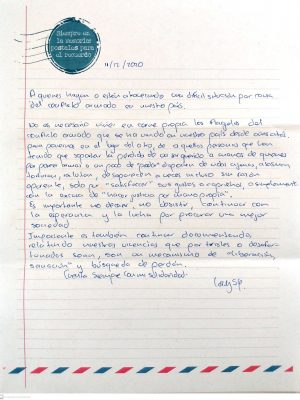 Siempre en
la memoria
postales para
el recuerdo
11/12/2020
A quienes hayan o estén atravesando una difícil situación por causa
del conflicto armado en nuestro país.
No es necesario vivir en carne propia los flagelos del
conflicto armado que se ha vivido en nuestro país desde
para ponernos en el lugar del otro, de aquellas personas que han
tenido que soportar la pérdida de a manos de quienes
por un poco de poder disponen de vidas ajenas, abusan,
torturan, violentan, desaparecen a veces incluso sin razón
aparente, solo por "satisfacer" sus egos o simplemente
con la excusa de "hacer justicia por mano propia".
Es importante no desistir, continuar con
la esperanza y la lucha por procurar una mejor
sociedad.
Importante es también continuar documentando,
relatando nuestras vivencias que por tristes o desafor-
tunadas sean, son un mecanismo de "liberación,
sanación" y búsqueda de perdón.
Cuenta siempre con mi solidaridad.